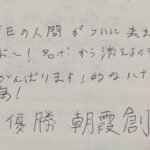 日の人間がついに来ま
〜!名ボから消えるの
がんばります!的なハナ
優勝 朝霞創